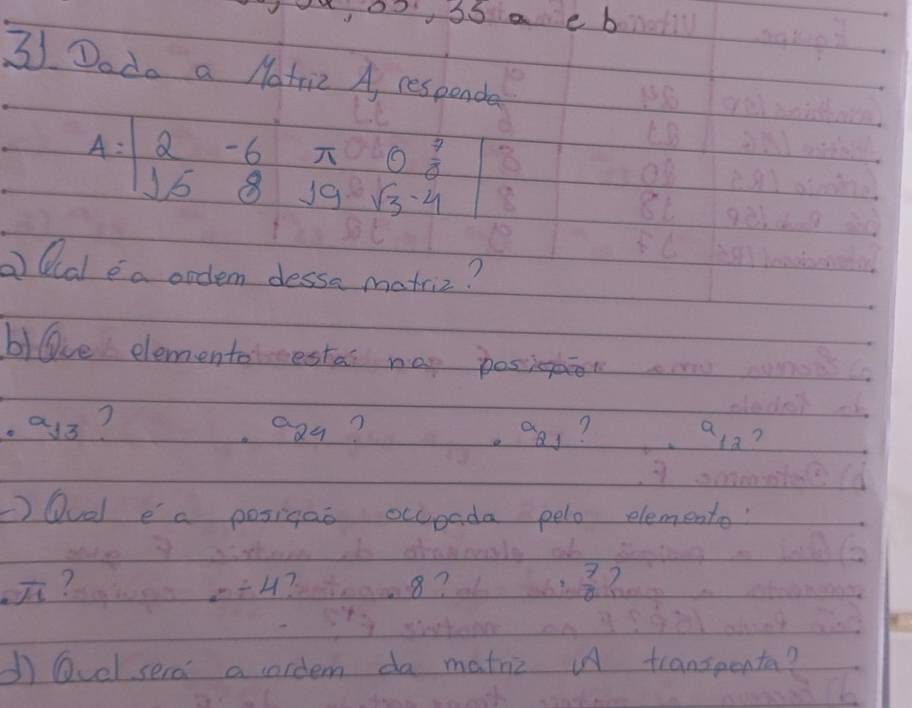 35 a e b
3) Dada a Matriz A, responda
A = | 2 -6 π 0 7/8 |
| 15 8 19 √3 -4 |
a) Qual é a ordem dessa matriz?
b) Que elemento está na posição
. a13? . a24? . a21? . a12?
c) Qual é a posição ocupada pelo elemento:
. π? . -4? . 8? . 7/8?
d) Qual será a ordem da matriz A transposta?